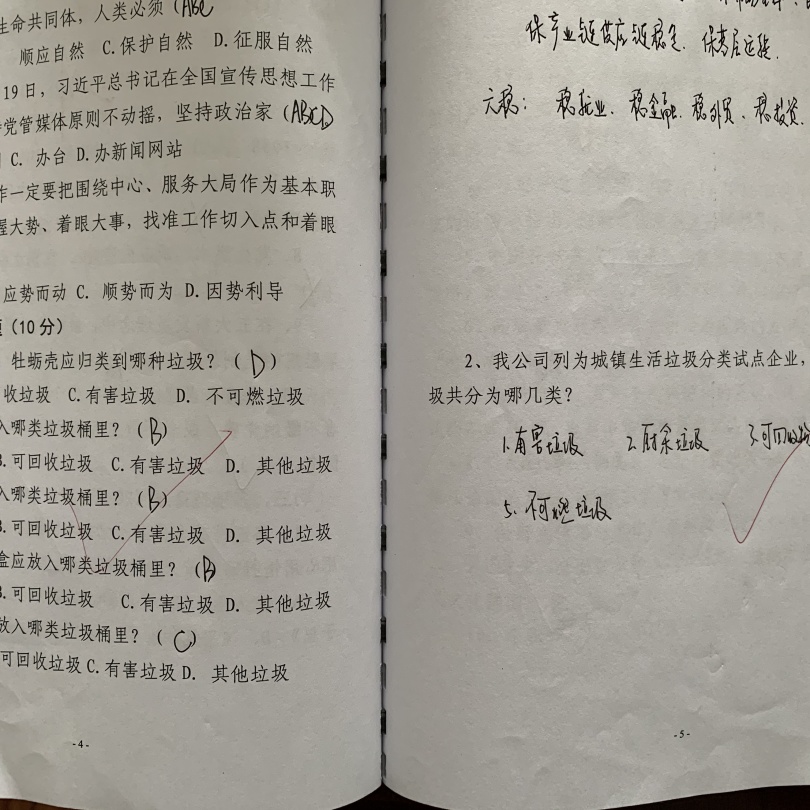 生命共同体，人类必须（ABC
顺应自然 C.保护自然 D.征服自然
19日，习近平总书记在全国宣传思想工作
党管媒体原则不动摇，坚持政治家（ABCD
C. 办台 D.办新闻网站
作一定要把围绕中心、服务大局作为基本职
握大势、着眼大事，找准工作切入点和着眼
应势而动 C. 顺势而为 D.因势利导
（10分）
牡蛎壳应归类到哪种垃圾？（D）
收垃圾 C.有害垃圾 D. 不可燃垃圾
入哪类垃圾桶里？（B）
B.可回收垃圾 C.有害垃圾 D. 其他垃圾
入哪类垃圾桶里？（B）
B.可回收垃圾 C.有害垃圾 D. 其他垃圾
盒应放入哪类垃圾桶里？（B
B.可回收垃圾 C.有害垃圾 D. 其他垃圾
放入哪类垃圾桶里？（C）
可回收垃圾 C.有害垃圾 D. 其他垃圾
-4-
保产业链供应链稳定. 保基层运转.
六稳： 稳就业、稳金融、稳外贸、稳投资.
2、我公司列为城镇生活垃圾分类试点企业，
圾共分为哪几类？
1.有害垃圾 2.厨余垃圾 3.可回收
5. 不可燃垃圾
-5-